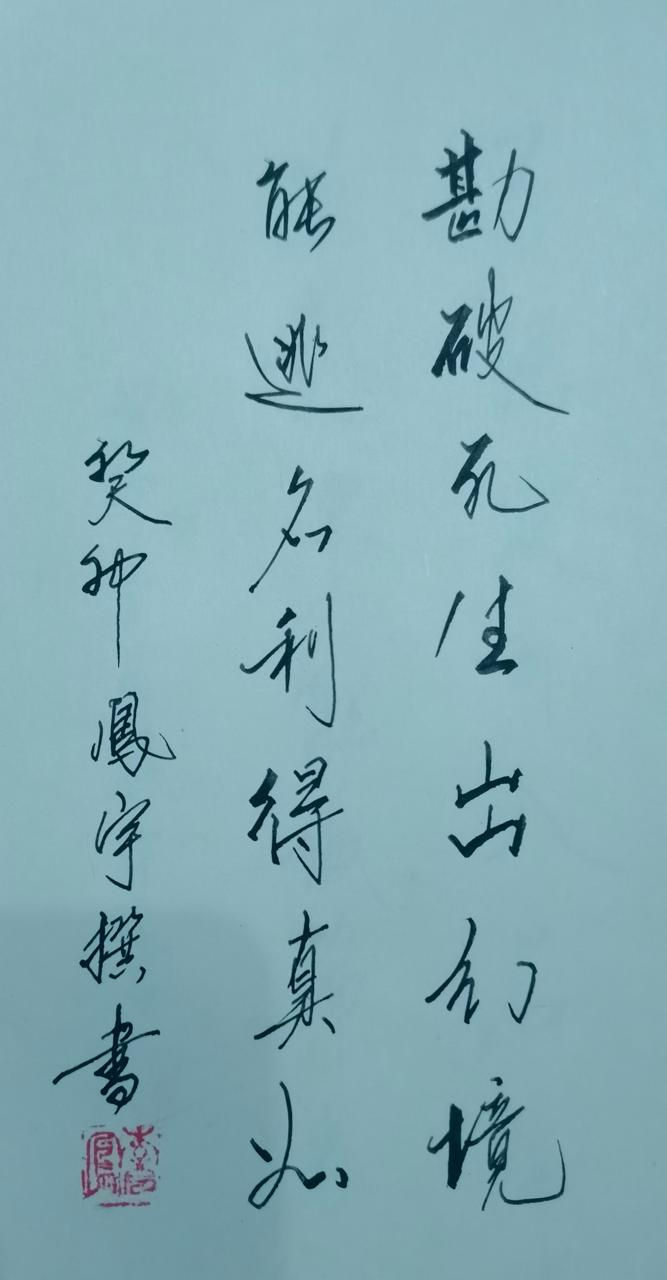 勘破死生出幻境
能逃名利得真如
癸卯鳳宇撰書